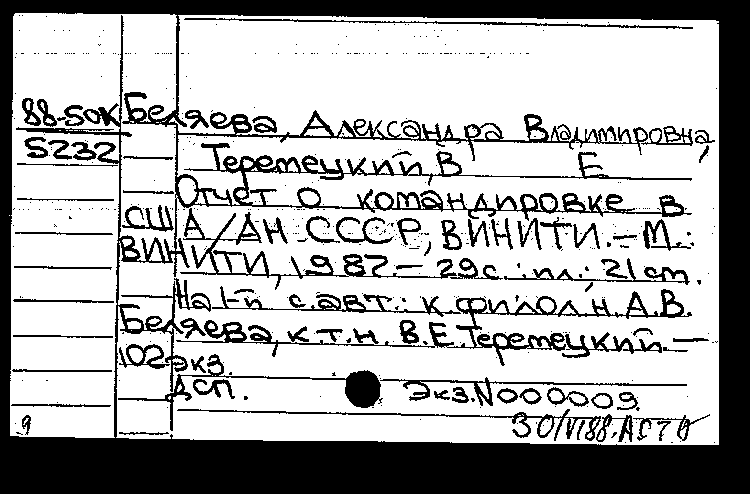 88-50К Беляева, Александра Владимировна,
5232 Теремецкий, В Е
Отчет о командировке в
США/АН СССР, ВИНИТИ. — М.:
ВИНИТИ, 1987 — 29с.: ил.; 21 cm.
На 1-й с. авт.: к.филол,н. А.В.
Беляева, к.т.н. В.Е.Теремецкий. —
102экз.
ДСП. Экз.N000009.
9 30/VI88.